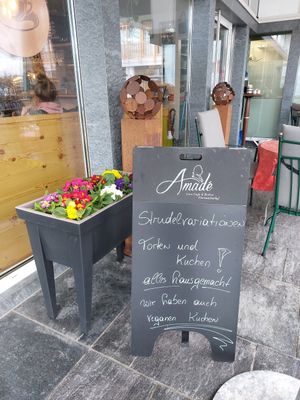 Amadé
Strudelvariationen
Torten und
Kuchen!
alles hausgemacht
Wir haben auch
veganen Kuchen